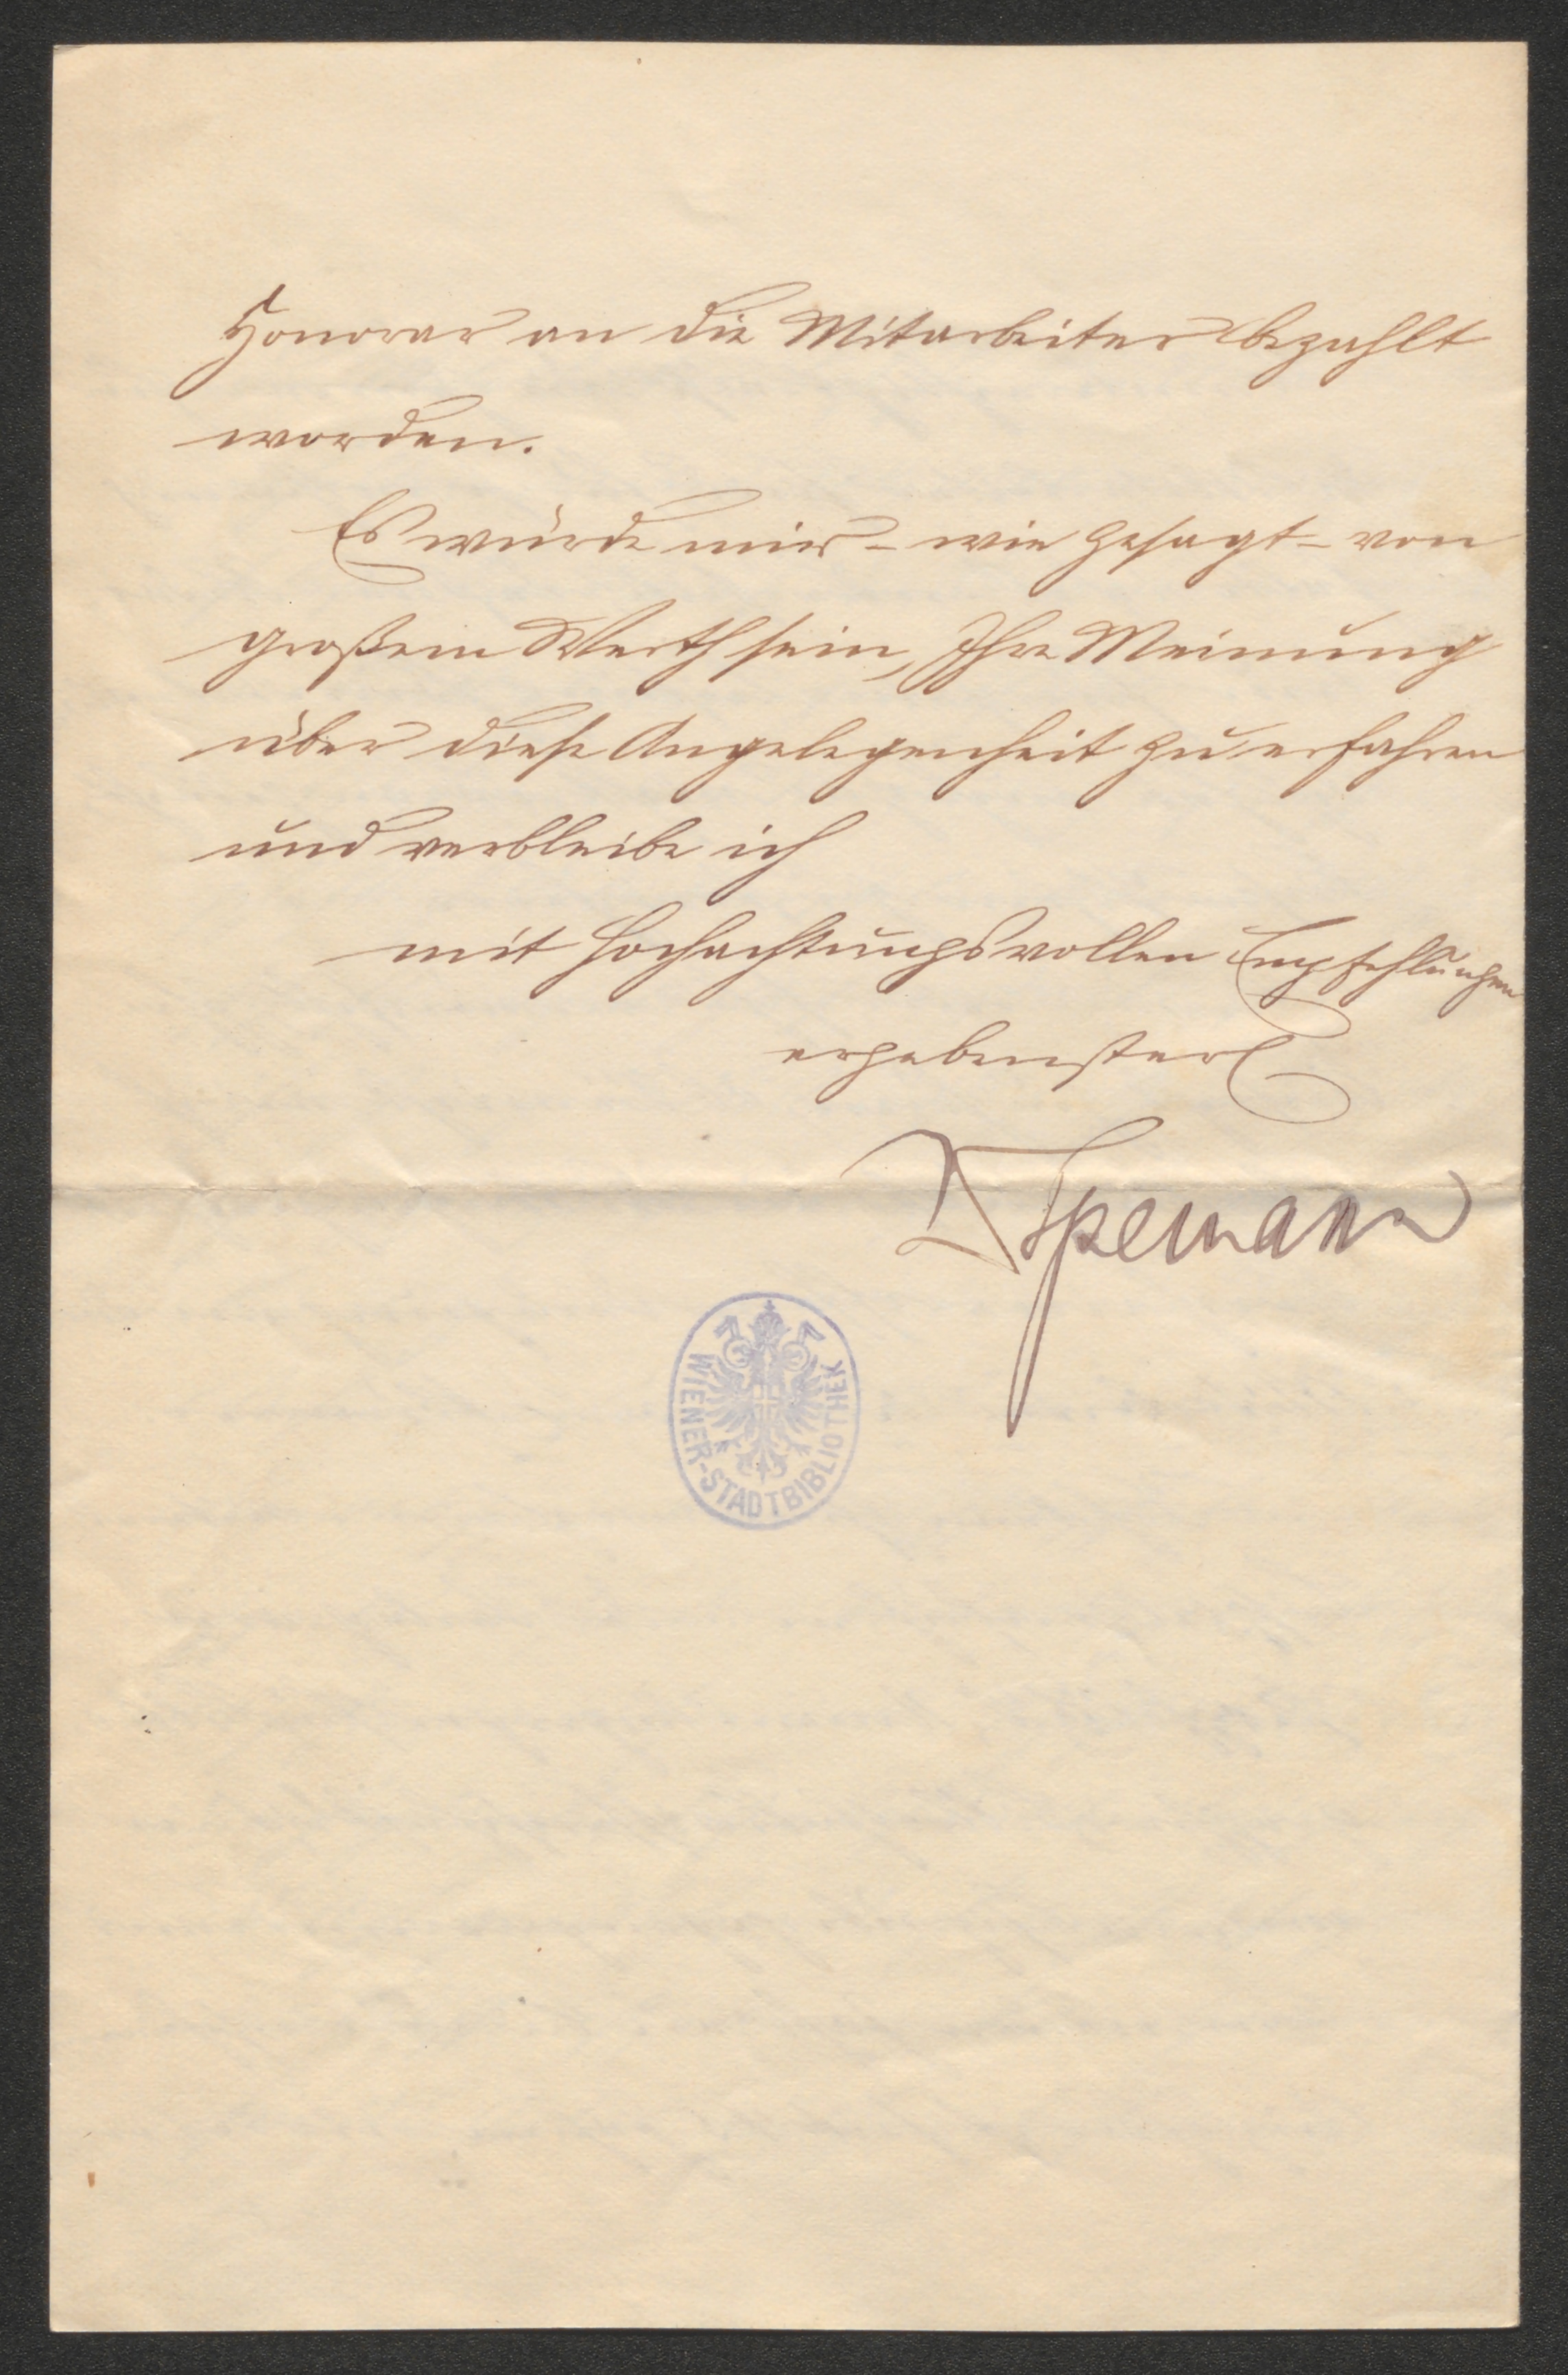 Honorar an die Mitarbeiter bezahlt
worden.
Es würde mir - wie gesagt - von
großem Werth sein, Ihre Meinung
über diese Angelegenheit zu erfahren
und verbleibe ich
mit hochachtungsvollen Empfehlungen
ergebenster
W Spemann
WIENER-STADTBIBLIOTHEK